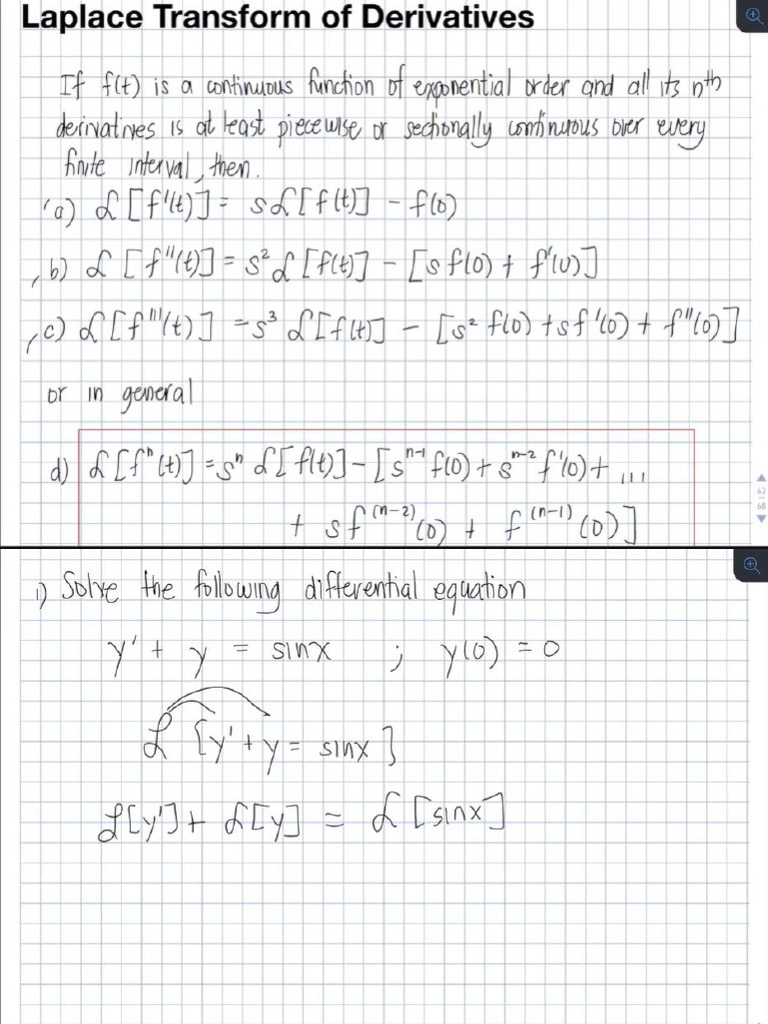 Laplace Transform of Derivatives
If f(t) is a continuous function of exponential order and all its nth
derivatives is at least piecewise or sectionally continuous over every
finite interval, then.
a) ℒ[f'(t)] = sℒ[f(t)] - f(0)
b) ℒ[f''(t)] = s²ℒ[f(t)] - [s f(0) + f'(0)]
c) ℒ[f'''(t)] = s³ ℒ[f(t)] - [s² f(0) + s f'(0) + f''(0)]
or in general
d) ℒ[fⁿ(t)] = sⁿ ℒ[f(t)] - [sⁿ⁻¹ f(0) + sⁿ⁻² f'(0) + ...
+ s f⁽ⁿ⁻²⁾(0) + f⁽ⁿ⁻¹⁾(0)]
63
68
1) Solve the following differential equation
y' + y = sinx ; y(0) = 0
ℒ [y' + y = sinx]
ℒ[y'] + ℒ[y] = ℒ[sinx]